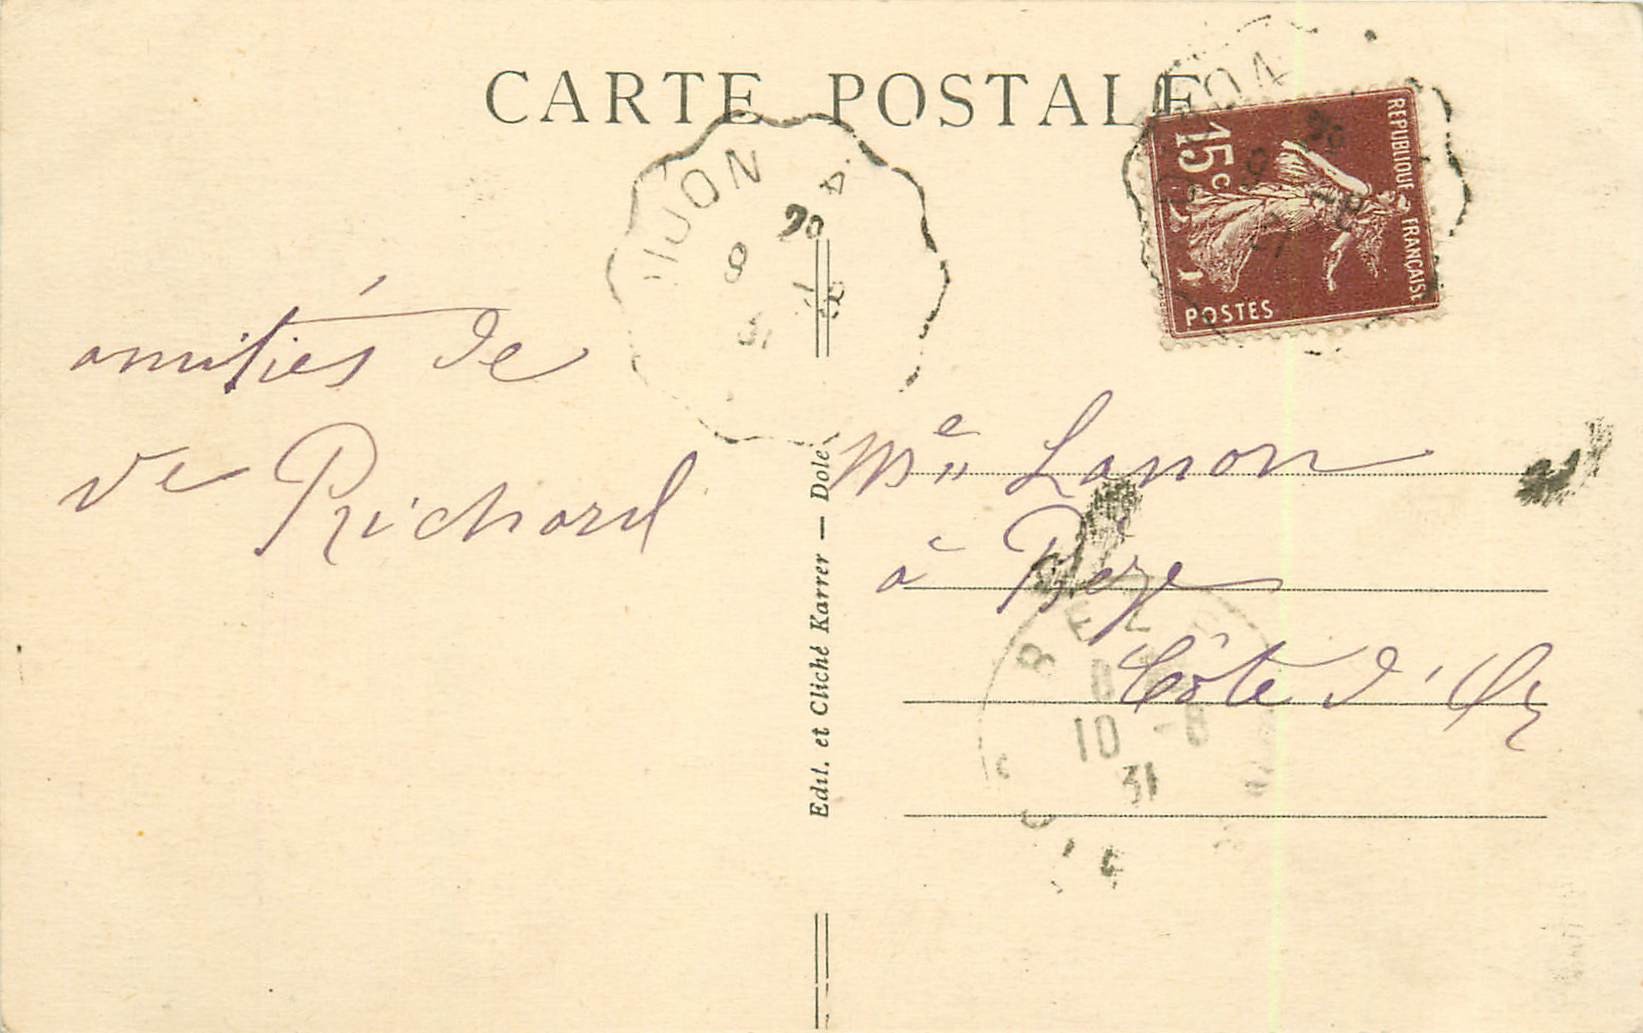 CARTE POSTALE
RÉPUBLIQUE FRANÇAISE
15c
POSTES
9 -8
31
amitiés de
de Richard
Mme Lanon
à Bèze
Côte d'Or
BEZE
10 -8
31
CÔTE
Edit. et Cliché Karrer — Dole